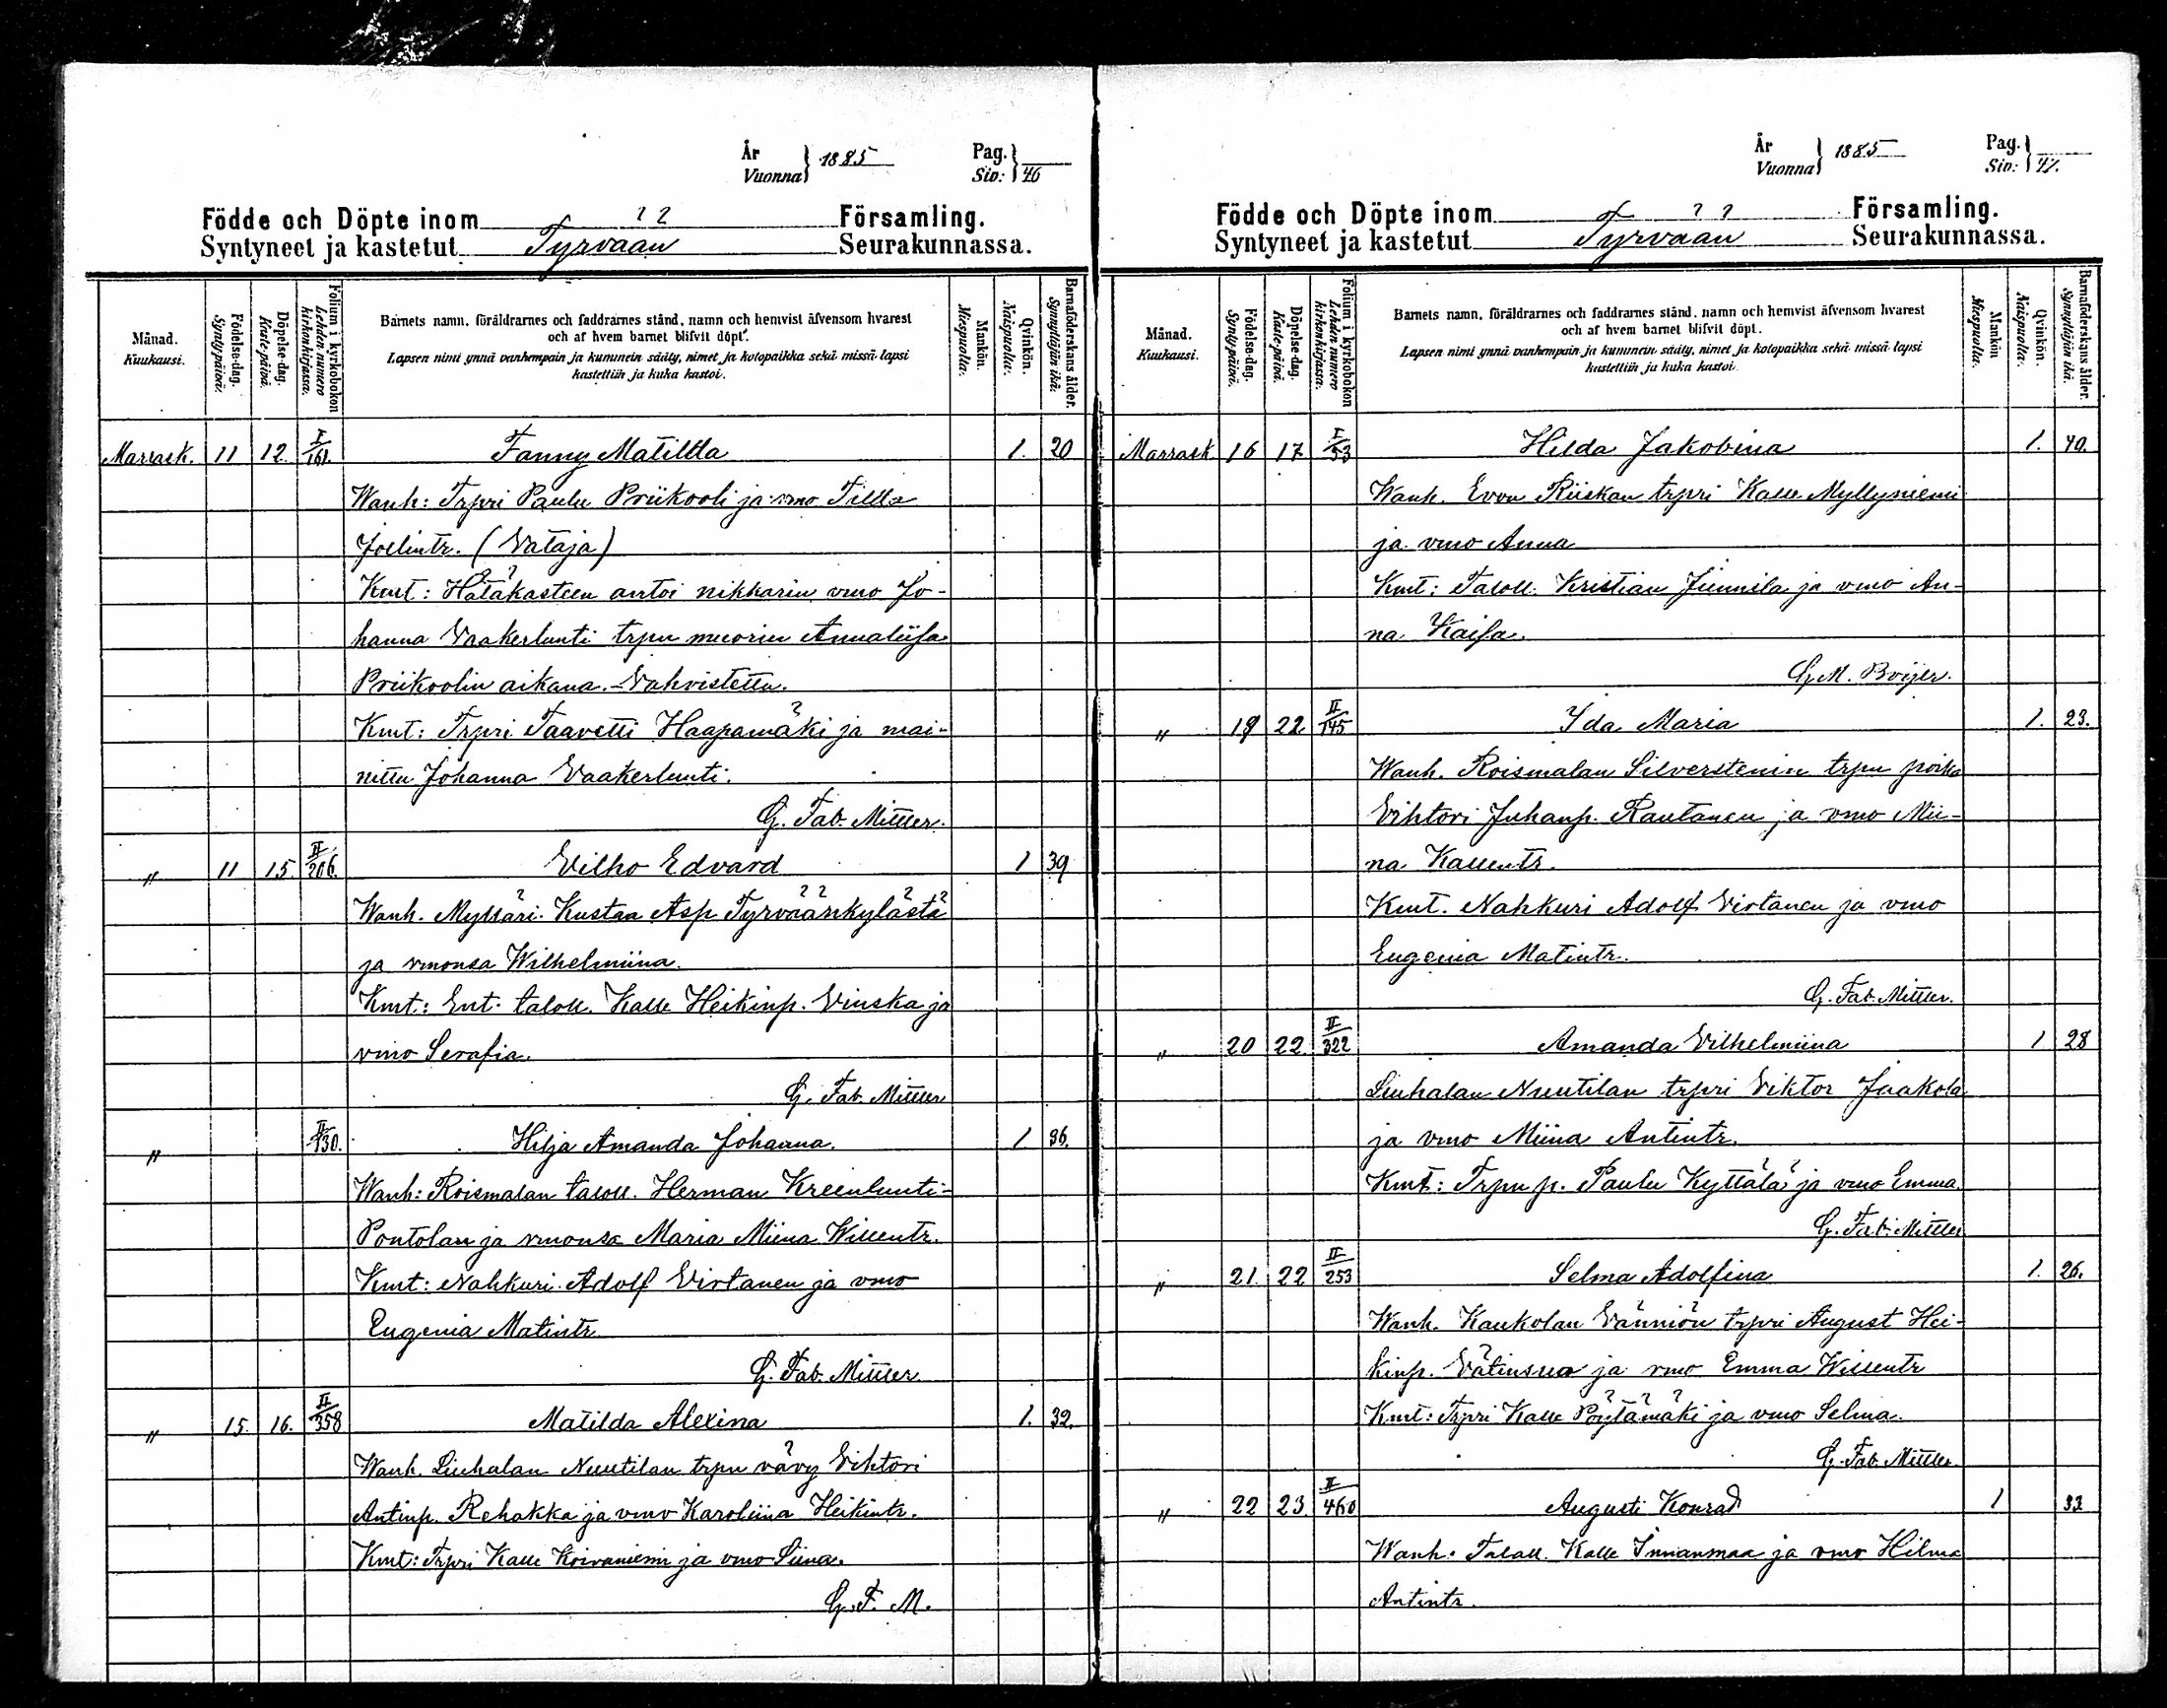 År
Vuonna } 1885
Pag.
Siv: } 46
Födde och Döpte inom Församling.
Syntyneet ja kastetut Tyrvään Seurakunnassa.
Månad. Kuukausi.
Födelse-dag. Synty-päivä.
Döpelse-dag. Kaste-päivä.
Folium i kyrkoboken Lehden numero kirkonkirjassa.
Barnets namn, föräldrarnes och faddrarnes stånd, namn och hemvist äfvensom hvarest
och af hvem barnet blifvit döpt.
Lapsen nimi ynnä vanhempain ja kummein sääty, nimet ja kotopaikka sekä missä lapsi
kastettiin ja kuka kastoi.
Mankön. Miespuolta.
Qvinkön. Naispuolta.
Barnaföderskans ålder. Synnyttäjän ikä.
Marrask. 11 12. I/161. Fanny Matilda 1. 20
Wanh: Trpri Paulu Priikooli ja vmo Tilda
Joelintr. (Vataja)
Kmt: Hätäkasteen antoi nikkarin vmo Jo-
hanna Vaakerlunti trpn muorin Annaliisa
Priikoolin aikana. - Vahvistettu.
Kmt: Trpri Taavetti Haapamäki ja mai-
nittu Johanna Vaakerlunti.
G. Fab. Mittler.
" 11 15. II/206. Vilho Edvard 1 39
Wanh. Mylläri Kustaa Asp Tyrväänkylästä
ja vmonsa Wilhelmiina.
Kmt: Ent. taloll. Kalle Heikinp. Vinska ja
vmo Serafia.
G. Fab. Mittler
" II/130. Hilja Amanda Johanna. 1 36.
Wanh: Roismalan taloll. Herman Kreenlunti-
Pontolan ja vmonsa Maria Miina Willentr.
Kmt: Nahkuri Adolf Virtanen ja vmo
Eugenia Matintr
G. Fab. Mittler
" 15. 16. II/358 Matilda Alexina 1. 32.
Wanh. Liuhalan Nuutilan trpn vävy Vihtori
Antinp. Rehakka ja vmo Karoliina Heikintr.
Kmt: Trpri Kalle Koivuniemi ja vmo Siina.
G. F. M.
År
Vuonna } 1885
Pag.
Siv: } 47.
Födde och Döpte inom Församling.
Syntyneet ja kastetut Tyrvään Seurakunnassa.
Månad. Kuukausi.
Födelse-dag. Synty-päivä.
Döpelse-dag. Kaste-päivä.
Folium i kyrkoboken Lehden numero kirkonkirjassa.
Barnets namn, föräldrarnes och faddrarnes stånd, namn och hemvist äfvensom hvarest
och af hvem barnet blifvit döpt.
Lapsen nimi ynnä vanhempain ja kummein sääty, nimet ja kotopaikka sekä missä lapsi
kastettiin ja kuka kastoi.
Mankön Miespuolta.
Qvinkön. Naispuolta.
Barnaföderskans ålder. Synnyttäjän ikä.
Marrask 16 17 I/53 Hilda Jakobina 1. 40.
Wanh. Evon Riiskan trpri Kalle Myllyniemi
ja vmo Anna
Kmt: Taloll. Kristian Junnila ja vmo An-
na Kaisa.
G. M. Brijer.
" 19 22 II/145 Ida Maria 1. 23.
Wanh. Roismalan Silverstenin trpn poika
Vihtori Juhanp. Rautanen ja vmo Mii-
na Kallentr.
Kmt. Nahkuri Adolf Virtanen ja vmo
Eugenia Matintr.
G. Fab. Mittler.
" 20 22 II/322 Amanda Vilhelmiina 1 28
Liuhalan Nuutilan trpri Viktor Jaakola
ja vmo Miina Antintr.
Kmt: Trpn p. Paulu Kyttälä ja vmo Emma.
G. Fab. Mittler
" 21. 22 II/253 Selma Adolfina 1. 26.
Wanh. Kaukolan Vänniön trpri August Hei-
kinp. Vätinsuo ja vmo Emma Willentr
Kmt: Trpri Kalle Pöytämäki ja vmo Selma.
G. Fab. Mittler.
" 22 23. II/460 Augusti Konrad 1 33
Wanh. Taloll. Kalle Innanmaa ja vmo Hilma
Antintr.